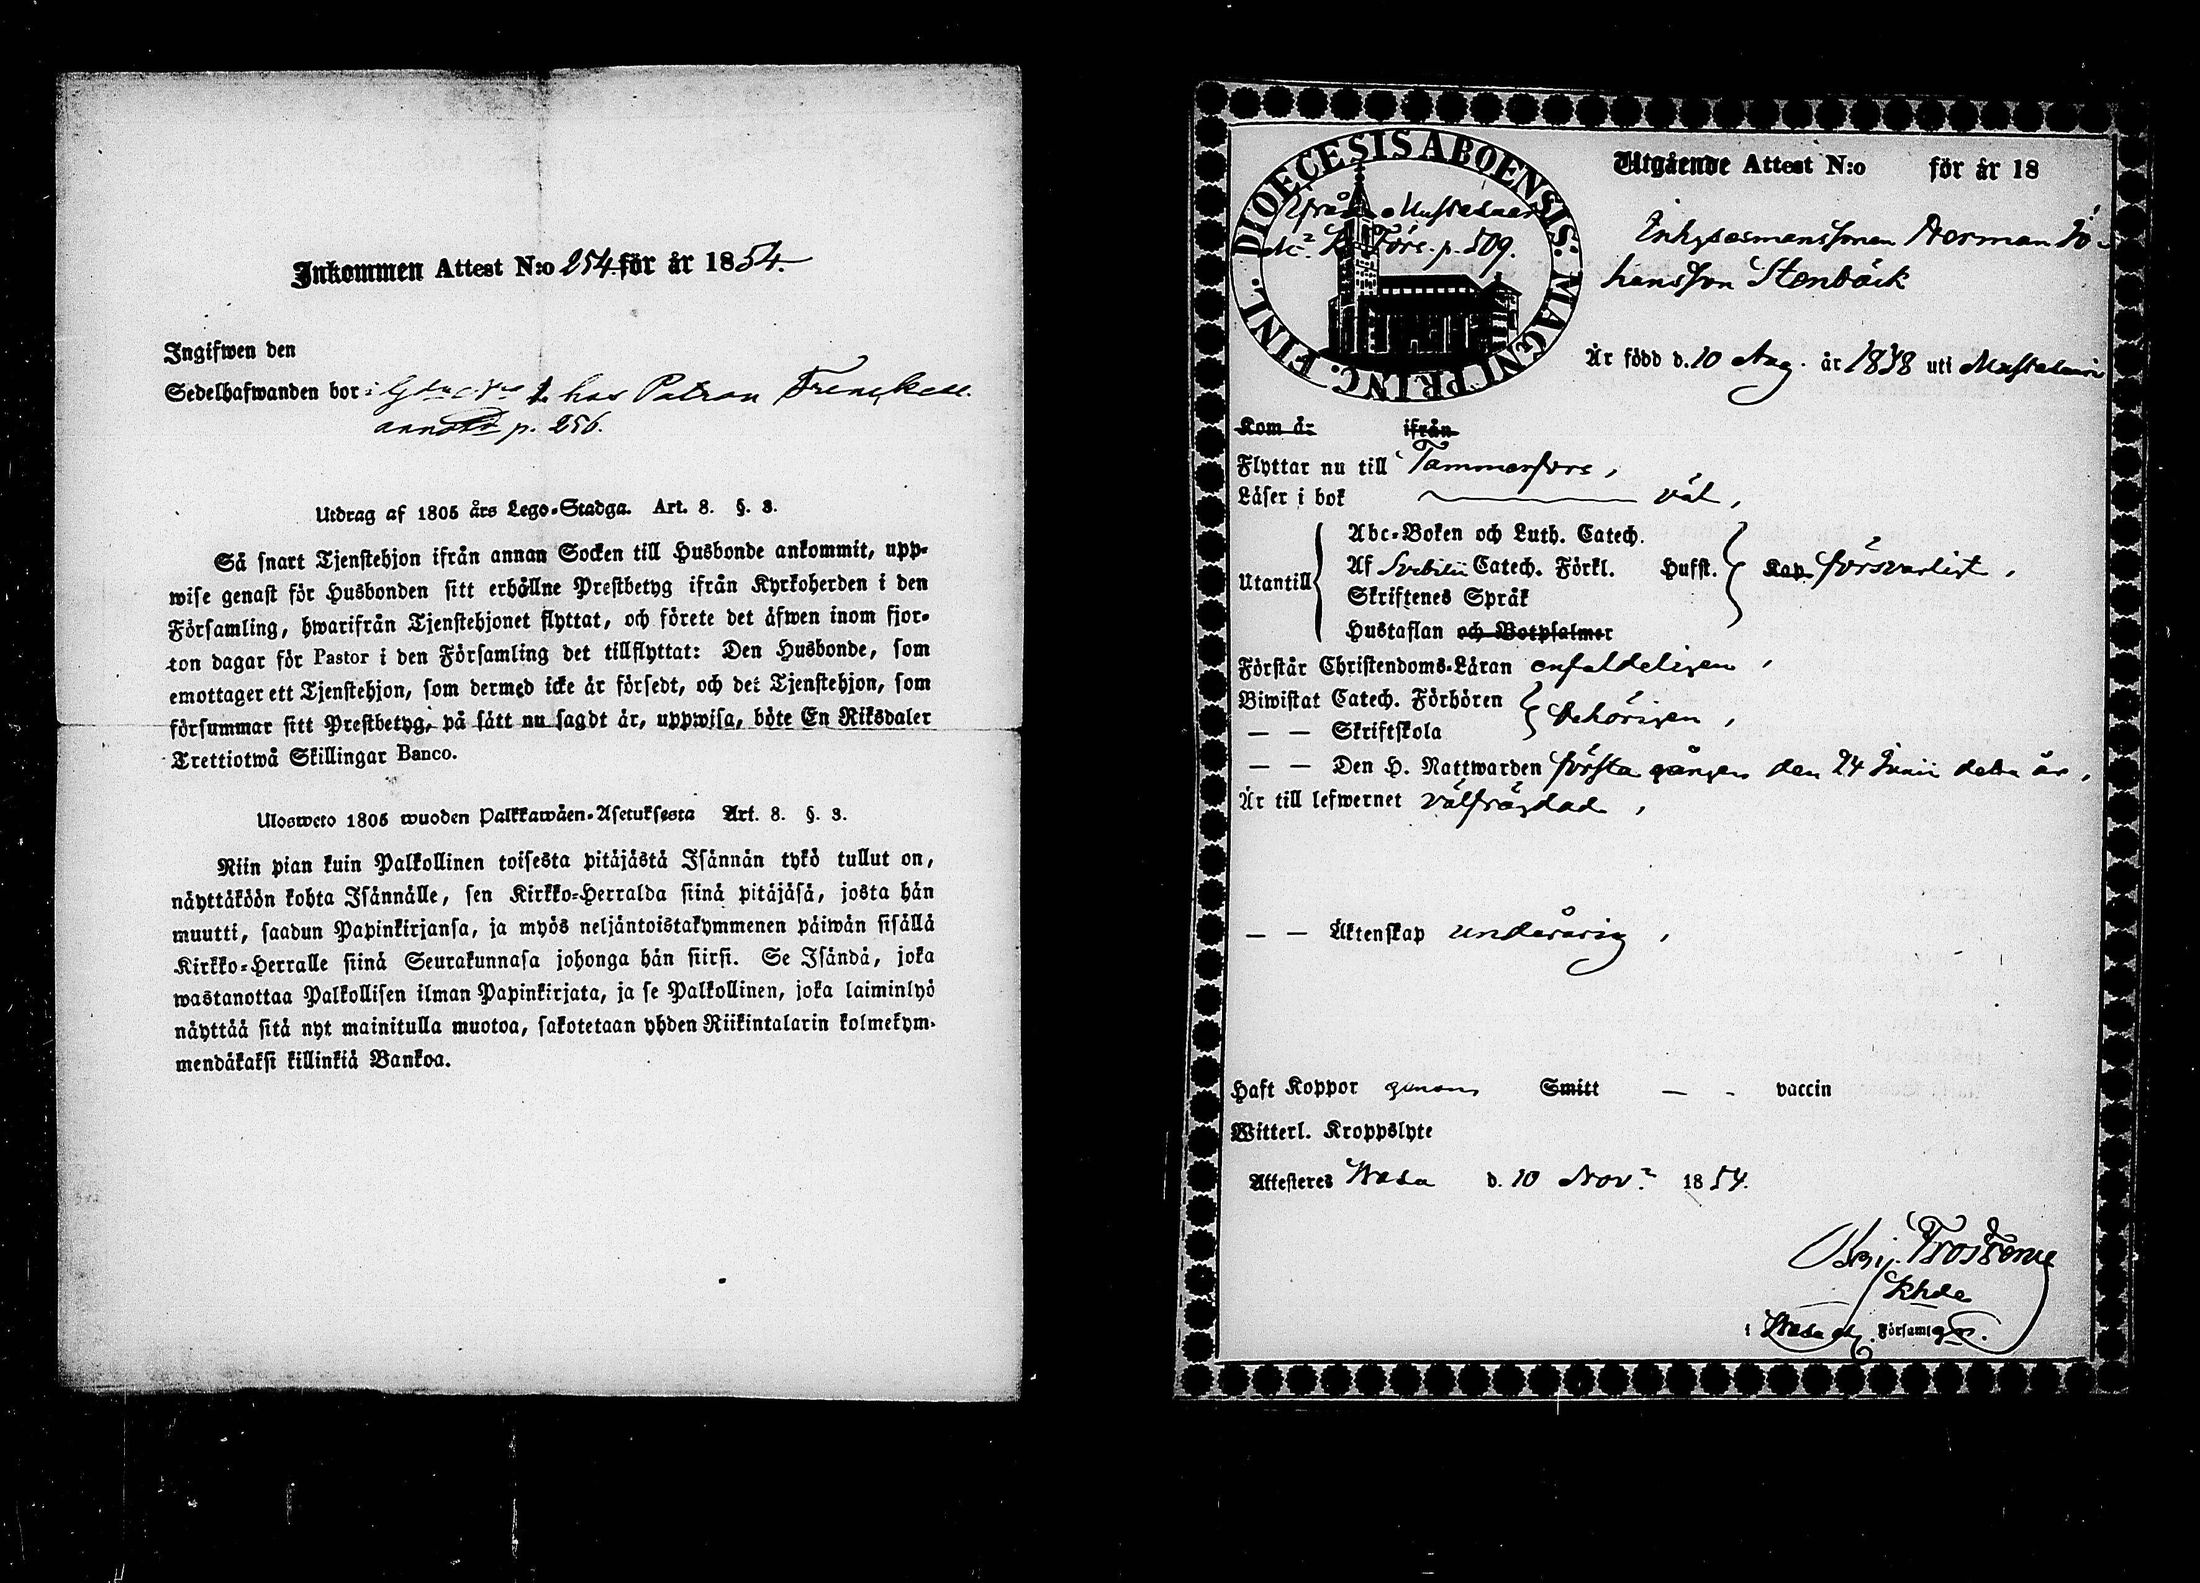 Inkommen Attest N:o 254 för år 1854.
Ingifwen den
Sedelhafwanden bor i hos Patron Frenckell.
p. 256.
Utdrag af 1805 års Lego-Stadga. Art. 8. §. 3.
Så snart Tjenstehjon ifrån annan Socken till Husbonde ankommit, upp-
wise genast för Husbonden sitt erhållne Prestbetyg ifrån Kyrkoherden i den
Församling, hwarifrån Tjenstehjonet flyttat, och förete det äfwen inom fjor-
ton dagar för Pastor i den Församling det tillflyttat: Den Husbonde, som
emottager ett Tjenstehjon, som dermed icke är försedt, och det Tjenstehjon, som
försummar sitt Prestbetyg, på sätt nu sagdt är, uppwisa, böte En Riksdaler
Trettiotwå Skillingar Banco.
Ulosweto 1805 wuoden Palkkawäen-Asetuksesta Art. 8. §. 3.
Niin pian kuin Palkollinen toisesta pitäjästä Isännän tykö tullut on,
näyttäköön kohta Isännälle, sen Kirkko-Herralda siinä pitäjäsä, josta hän
muutti, saadun Papinkirjansa, ja myös neljäntoistakymmenen päiwän sisällä
Kirkko-Herralle siinä Seurakunnasa johonga hän siirsi. Se Isändä, joka
wastanottaa Palkollisen ilman Papinkirjata, ja se Palkollinen, joka laiminlyö
näyttää sitä nyt mainitulla muotoa, sakotetaan yhden Riikintalarin kolmekym-
mendäkaksi killinkiä Bankoa.
DIOECESIS ABOENSIS. MAGNI PRINC. FINL.
Ifrån Mustasaari
Förs. p. 509.
Utgående Attest N:o för år 18
Inhysesmanssonen Herman Jo-
hansson Stenbäck
Är född d. 10 Aug. år 1838 uti Mustasaari
Kom år ifrån
Flyttar nu till Tammerfors,
Läser i bok väl,
Utantill
Abc-Boken och Luth. Catech.
Af Svebilii Catech. Förkl. Husst. Kap försvarligt,
Skriftenes Språk
Hustaflan och Botpsalmer
Förstår Christendoms-Läran enfaldeligen,
Biwistat Catech. Förhören
behörigen,
— — Skriftskola
— — Den H. Nattwarden första gången den 24 Junii detta år,
Är till lefwernet välfrägdad,
— — Äktenskap underårig,
Haft Koppor genom Smitt — - vaccin
Witterl. Kroppslyte
Attesteres Wasa d. 10 Nov. 1854.
Khde
i Wasa Församl